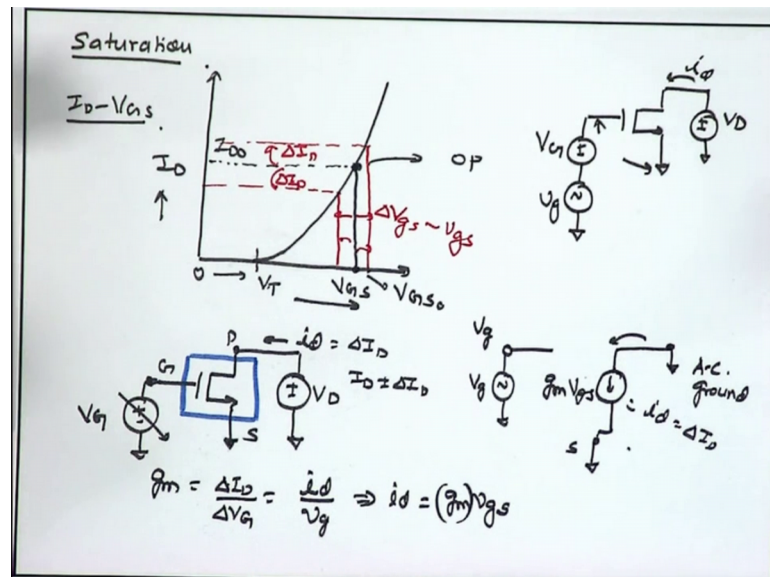 Saturation
I_D-V_GS.
I_D
I_D0
ΔI_D
ΔI_D
OP
ΔV_gs ~ v_gs
0
V_T
V_GS
V_GS0
i_d
V_D
V_G
v_g
D
i_d = ΔI_D
G
V_G
V_D
I_D ± ΔI_D
S
V_g
V_g
g_m V_gs
A.C.
ground
= i_d = ΔI_D
S
g_m = ΔI_D/ΔV_G = i_d/v_g ⇒ i_d = (g_m) v_gs